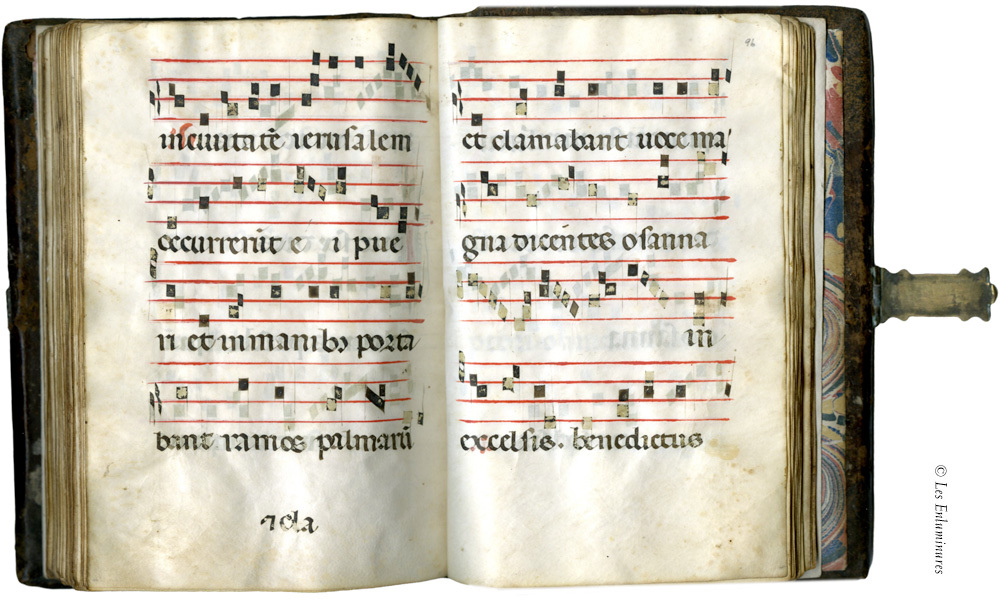 in ciuitatē ierusalem
occurrerūt e i pue
ri et in manibꝰ porta
bant ramos palmarū
⁊ cla
96
et clamabant uoce ma
gna dicentes osanna
in
excelsis. benedictus
© Les Enluminures